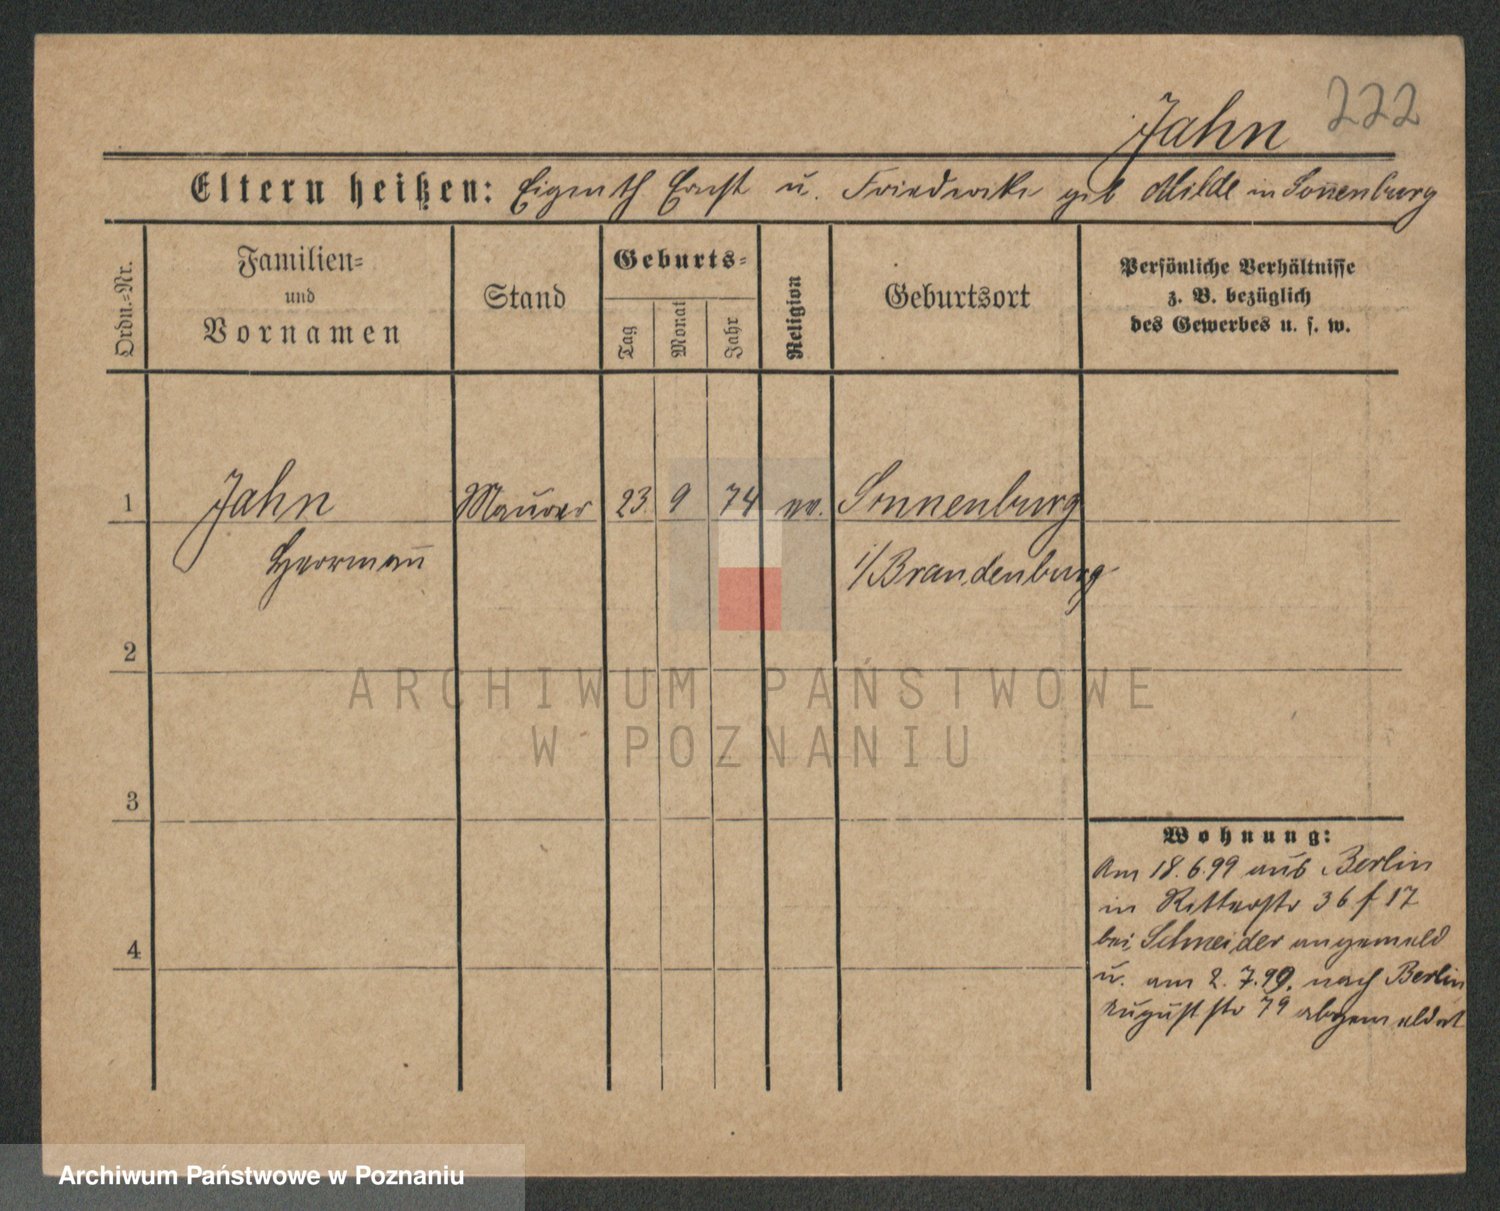 222
Jahn
Eltern heißen: Eigenth Ernst u. Friederike geb Milde in Sonnenburg
Ordn.=Nr.
Familien=
und
Vornamen
Stand
Geburts=
Tag
Monat
Jahr
Religion
Geburtsort
Persönliche Verhältnisse
z. B. bezüglich
des Gewerbes u. s. w.
1
Jahn
Herrmann
Maurer
23.
9
74
ev.
Sonnenburg
i/Brandenburg
2
3
4
Wohnung:
Am 18.6.99 aus Berlin
in Ritterstr 36 f 17
bei Schneider angemeld
u. am 2.7.99. nach Berlin
Auguststr 79 abgemeldet
ARCHIWUM PAŃSTWOWE
W POZNANIU
Archiwum Państwowe w Poznaniu